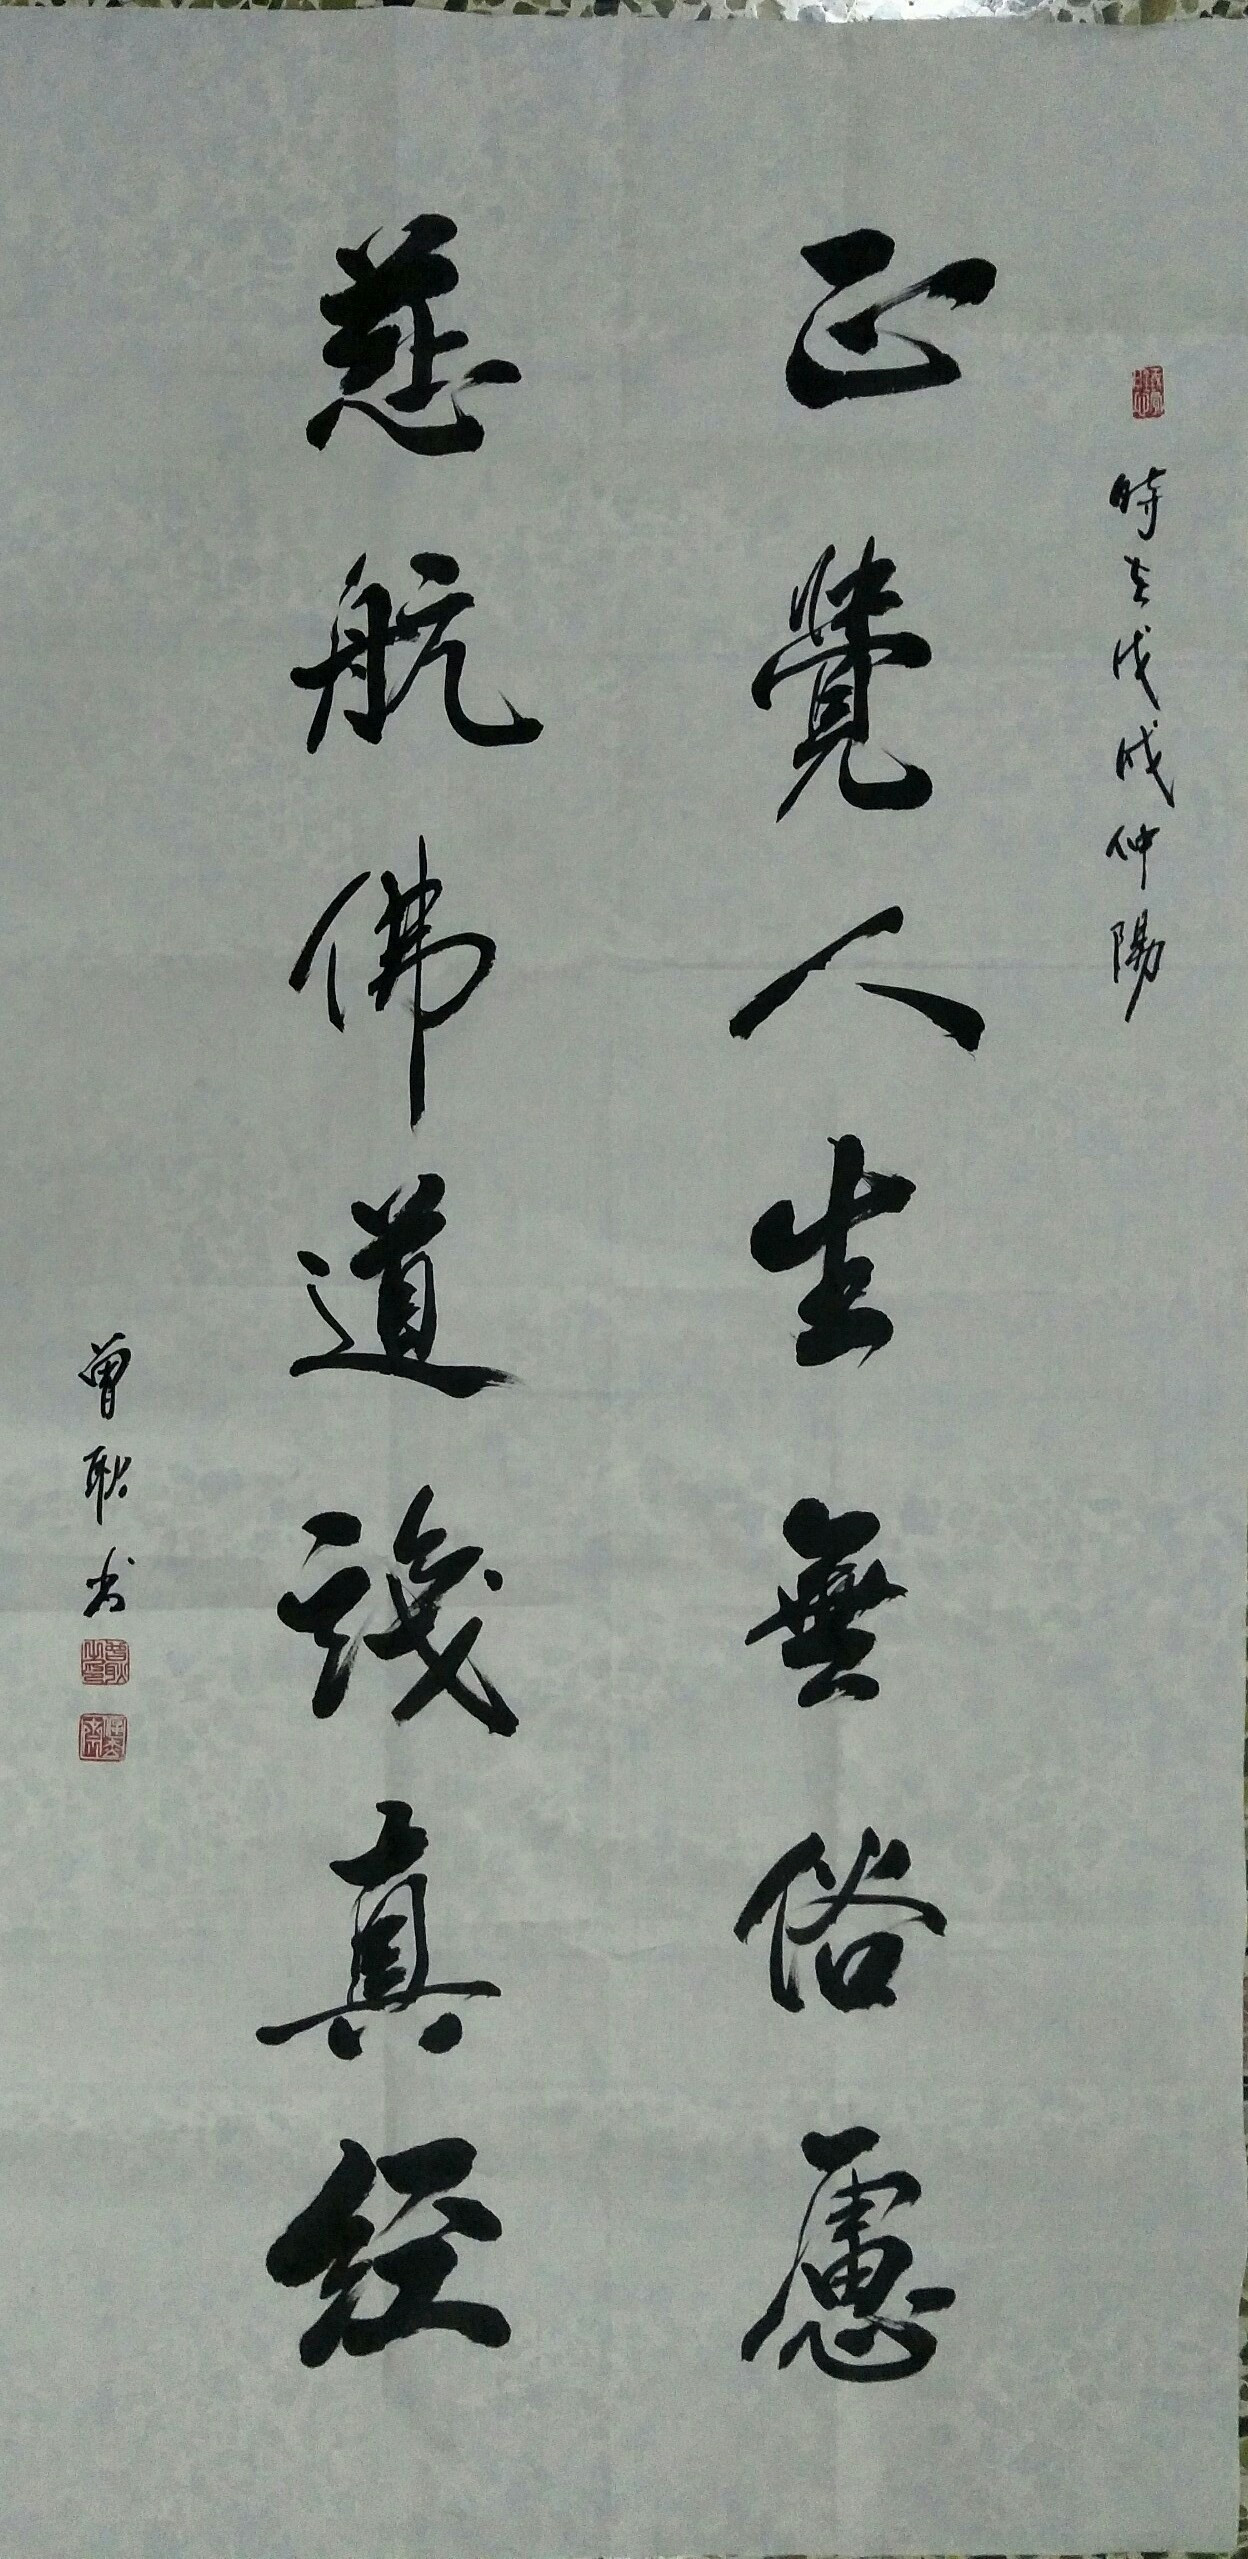 時在戊戌仲陽
正覺人生無俗慮
慈航佛道識真经
曾耿书